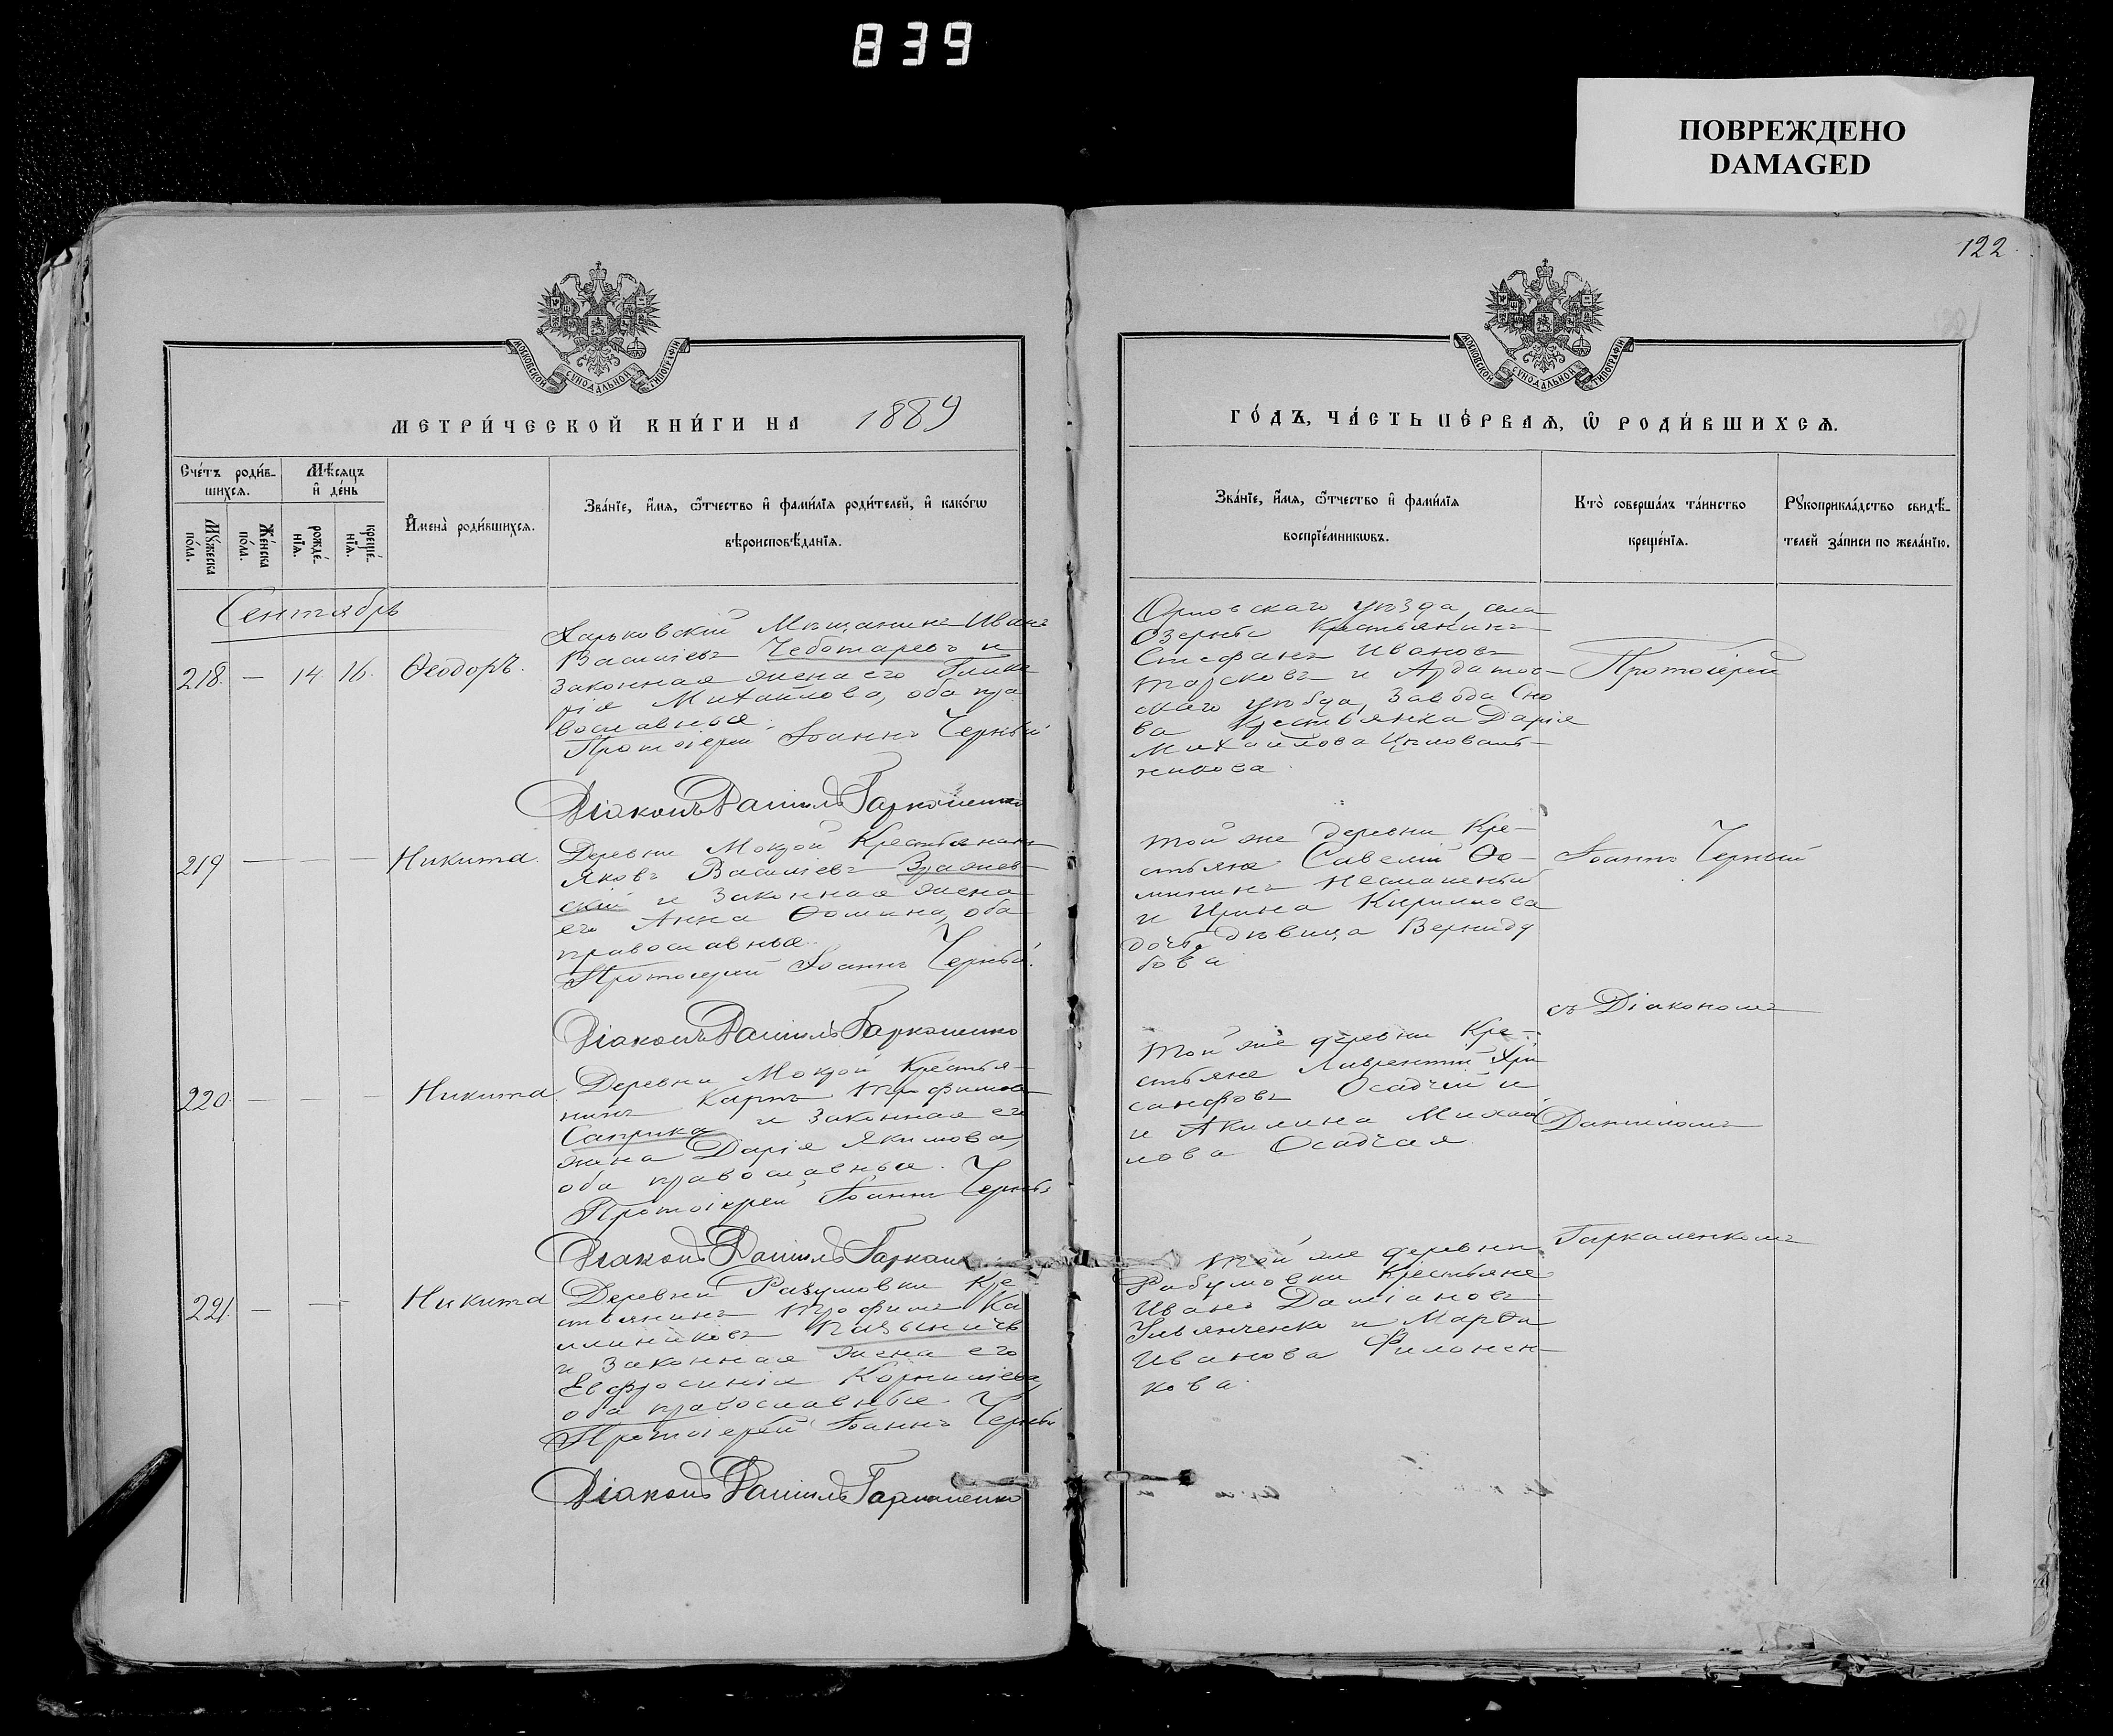 839
ПОВРЕЖДЕНО
DAMAGED
122
МОСКОВСКОЙ СѴНОДАЛЬНОЙ ТИПОГРАФІИ
МЕТРИ́ЧЕСКОЙ КНИ́ГИ НА 1889
Сче́тъ роди́в-
шихсѧ.
Мѣ́сяцъ
и҆ де́нь
Мꙋ́жеска
по́ла.
Же́нска
по́ла.
рожде́-
нїѧ.
креще́-
нїѧ.
И҆мена̀ роди́вшихсѧ.
Зва́нїе, и҆́мѧ, ѻ҆́тчество и҆ фами́лїѧ роди́телей, и҆ како́гѡ
вѣроисповѣ́данїѧ.
Сентябрь
218. — 14 16. Ѳеодоръ.
Харьковскій Мѣщанинъ Иванъ
Васильевъ Чеботаревъ и
законная жена его
Михайлова, оба пра
вославные.
Протоіерей Іоаннъ Черный
Діаконъ Даніилъ Гаркаленко
219 — — — Никита.
Деревни Мокрой Крестьянинъ
Яковъ Васильевъ
и законная жена
его Анна Ѳомина, оба
православные.
Протоіерей Іоаннъ Черный.
Діаконъ Даніилъ Гаркаленко
220. — — — Никита
Деревни Мокрой Крестья-
нинъ Карпъ Трофимовъ
Саприка и законная его
жена Дарія Якимова,
оба православные.
Протоіерей Іоаннъ Черный
Діаконъ Даніилъ Гаркален
221. — — Никита
Деревни Разумовки Кре-
стьянинъ Трофимъ Ка
линиковъ
и законная жена его
Евфросинія Корнилiева,
оба православные.
Протоіерей Іоаннъ Черный
Діаконъ Даніилъ Гаркаленко
МОСКОВСКОЙ СѴНОДАЛЬНОЙ ТИПОГРАФІИ
ГО́ДЪ, ЧА́СТЬ ПЕ́РВАѦ, Ѡ҆ РОДИ́ВШИХСѦ.
Зва́нїе, и҆́мѧ, ѻ҆́тчество и҆ фами́лїѧ
воспрїе́мникѡвъ.
Кто̀ соверша́лъ та́инство
креще́нїѧ.
Рꙋкоприкла́дство свидѣ́-
телей за́писи по жела́нїю.
Орловскаго уѣзда, села
Озерны Крестьянинъ
Стефанъ Ивановъ
и Ардатов-
скаго уѣзда, завода Сно
ва Крестьянка Дарія
Михайлова Цѣловаль-
никова.
Той же деревни Кре-
стьяне Савелій Ѳо-
мининъ
и Ирина Кирилова
дочь дѣвица Верниду
бова
Той же деревни Кре-
стьяне Лаврентій Хри
санфовъ Осадчій и
и Акилина Михай
лова Осадчая.
Той же деревни
Разумовки Крестьяне
Иванъ Даміановъ
Ульянченко и Марѳа
Иванова Филонен-
кова.
Протоіерей
Іоаннъ Черный
съ Діакономъ
Даніиломъ
Гаркаленкомъ